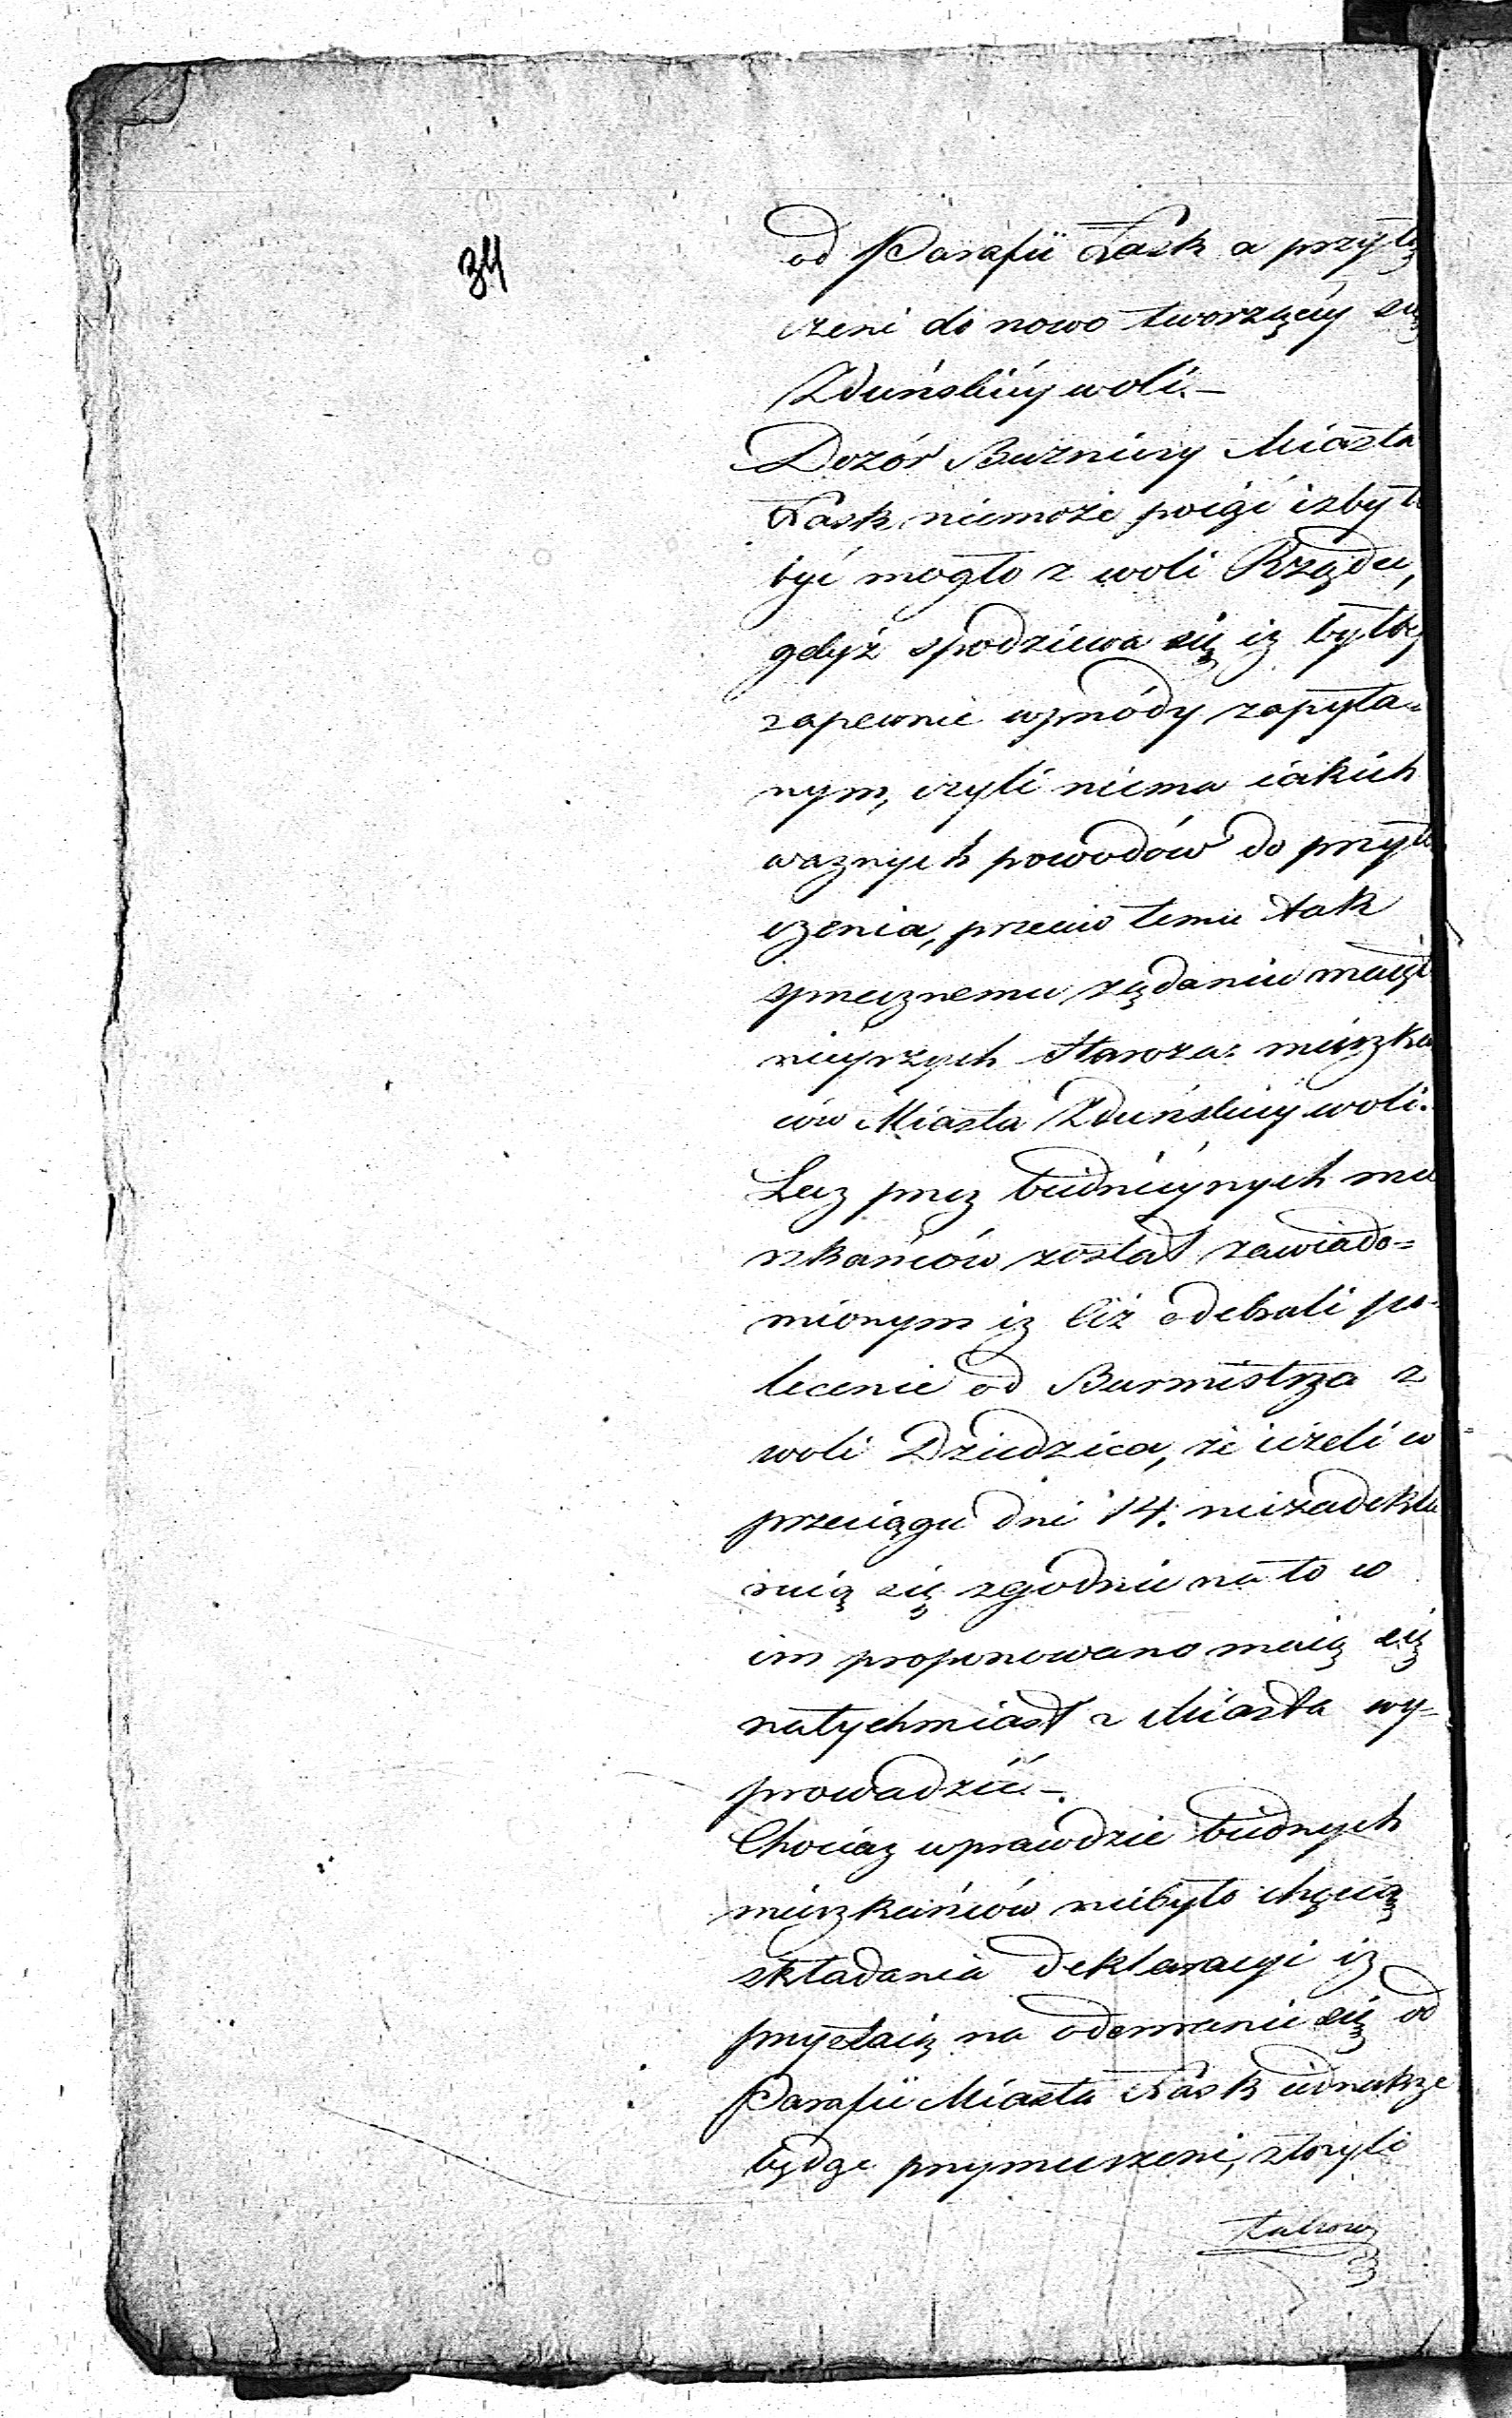 34
od Parafii Łask a przyłą
czeni do nowo tworzącéy się
Zduńskiéy woli.—
Dozór Bużniczy Miasta
Łask niemoże poiąć izby to
być mogło z woli Rządu,
gdyż spodziewa się iż byłby
zapewnie wprzódy zapyta=
nym, czyli niema iakich
ważnych powodów do przyto
czenia, przeciw temu tak
sprzecznemu żądaniu maięt
nieyszych Staroza: mieszka
ców Miasta Zduńskiéy woli.
Lecz przez biednieyszych mie
szkańców został zawiado=
mionym iż iuż odebrali po=
lecenie od Burmistrza z
woli Dziedzica, że ieżeli w
przeciągu dni 14. niezadekla
ruią się zgodnie na to co
im proponowano maią się
natychmiast z Miasta wy=
prowadzić.—
Chociaż wprawdzie biednych
mieszkańców niebyło chęcią
składania deklaracyi iż
przystaią na oderwanie się od
Parafii Miasta Łask iednakże
będąc przymuszeni, złożyli